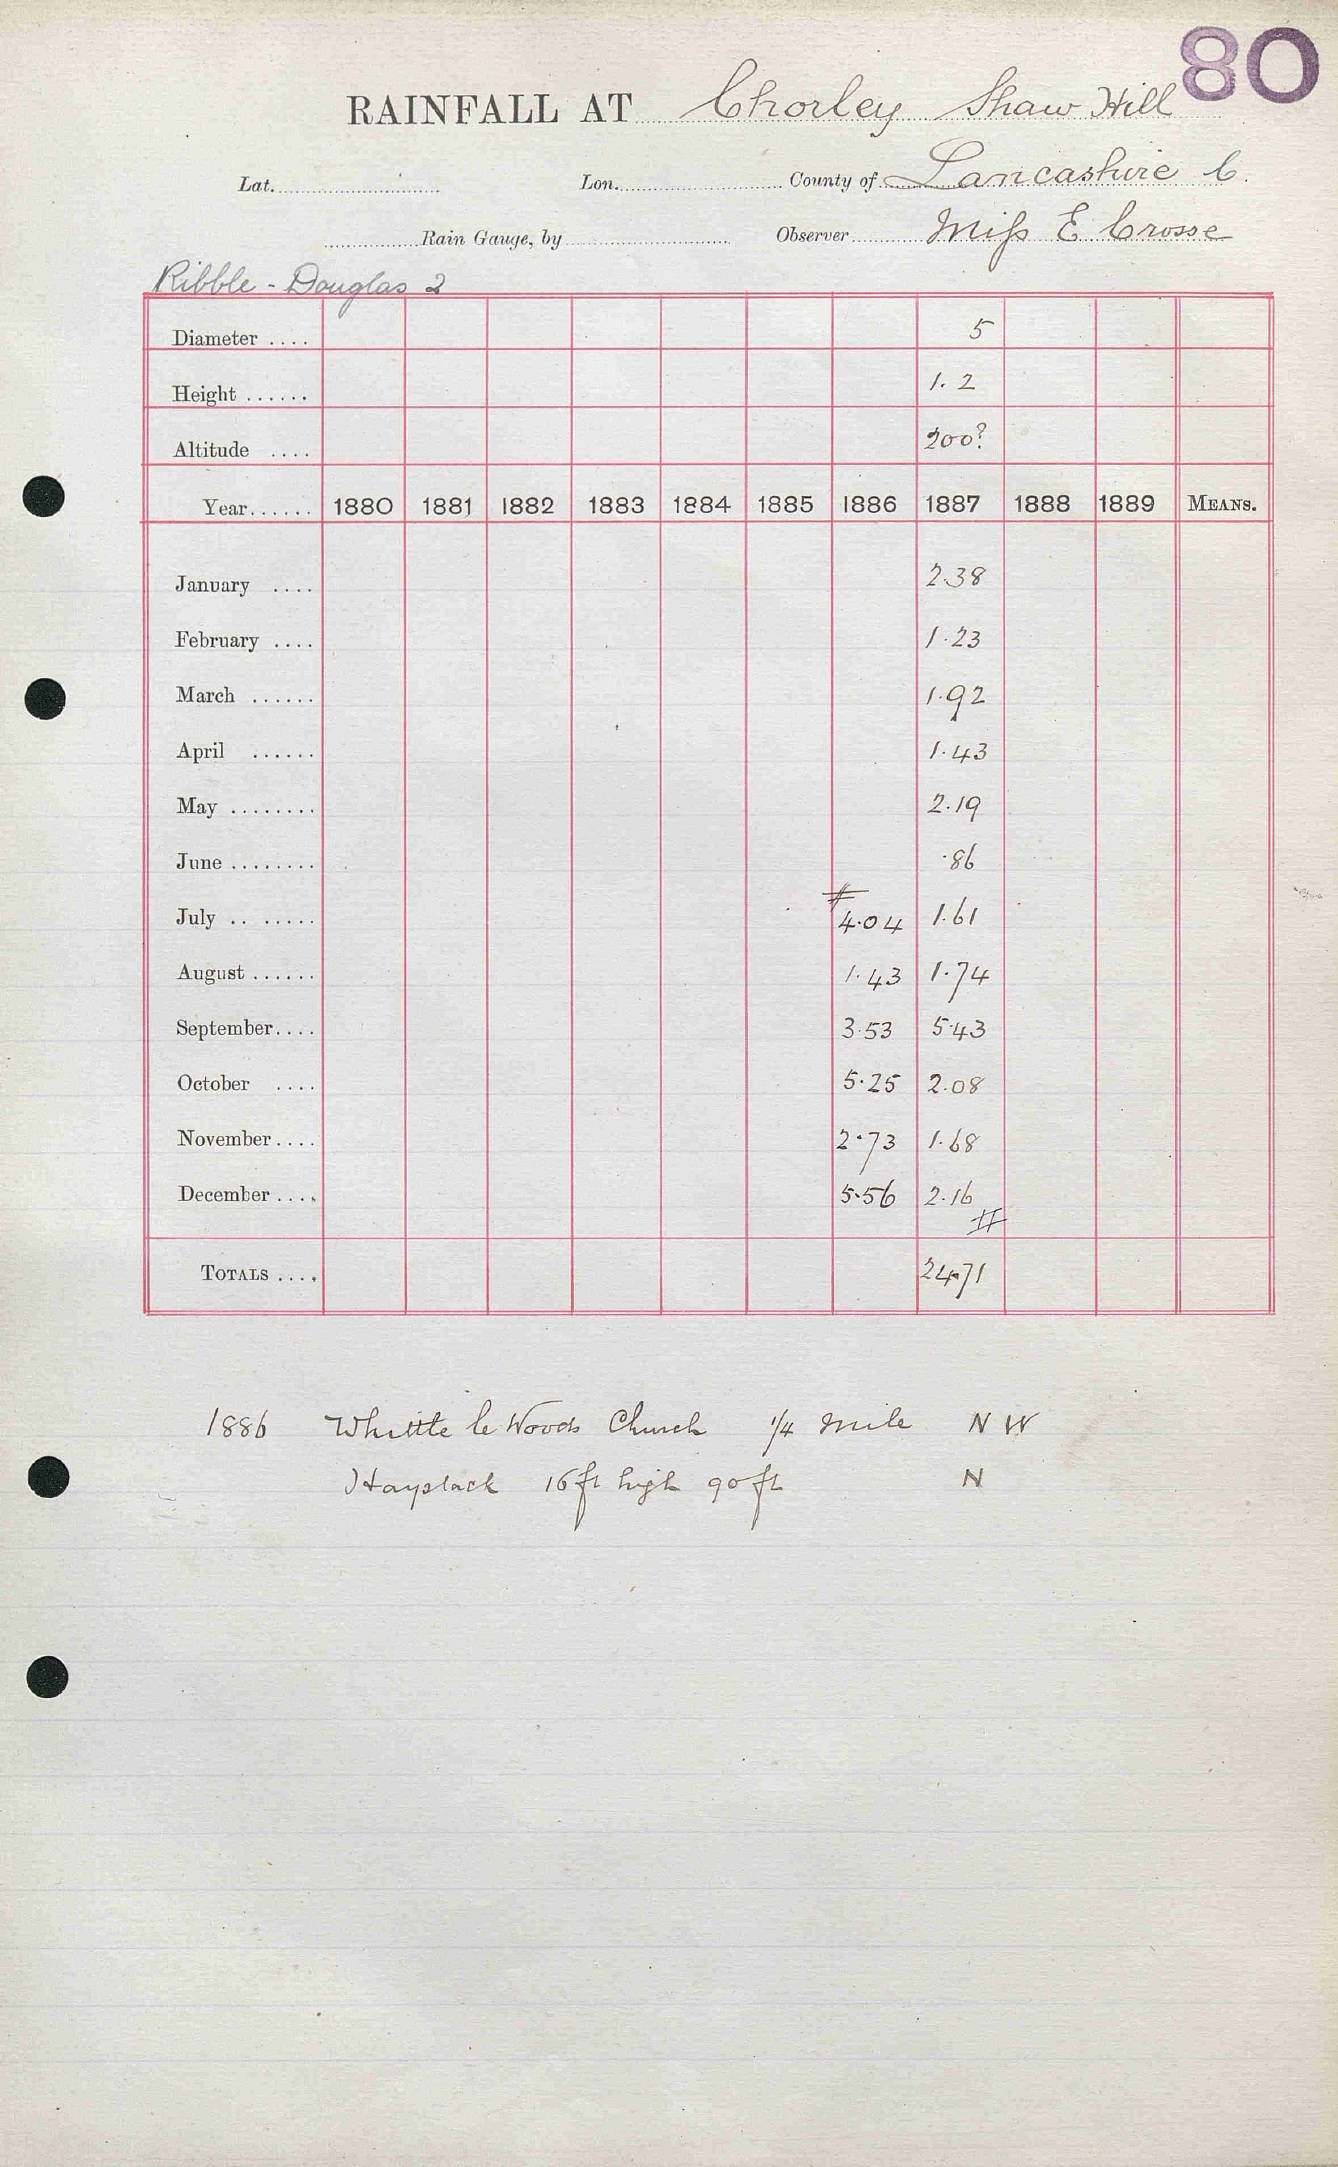 80
RAINFALL AT Chorley Shaw Hill
Lat. Lon. County of Lancashire C.
Rain Gauge, by Observer Miss E Crosse
Ribble - Douglas 2
Diameter .... 5
Height ...... 1.2
Altitude .... 200?
Year...... 1880 1881 1882 1883 1884 1885 1886 1887 1888 1889 MEANS.
January .... 2.38
February .... 1.23
March ...... 1.92
April ...... 1.43
May ........ 2.19
June ........ .86
July .. ..... # 4.04 1.61
August ...... 1.43 1.74
September.... 3.53 5.43
October .... 5.25 2.08
November.... 2.73 1.68
December .... 5.56 2.16 #
TOTALS .... 24.71
1886 Whittle le Woods Church 1/4 mile N W
Haystack 16ft high 90ft N